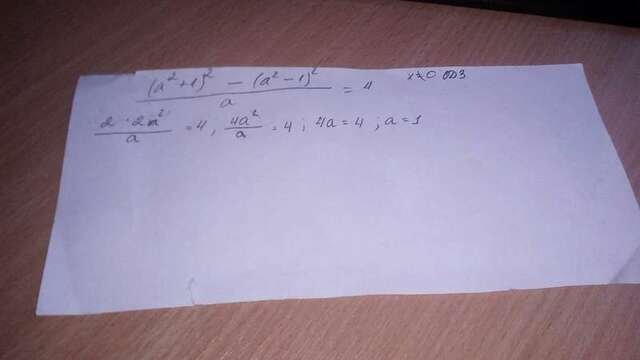 (a²+1)² - (a²-1)² / a = 4 x≠0 ОДЗ
2 · 2a² / a = 4, 4a² / a = 4; 4a = 4; a = 1